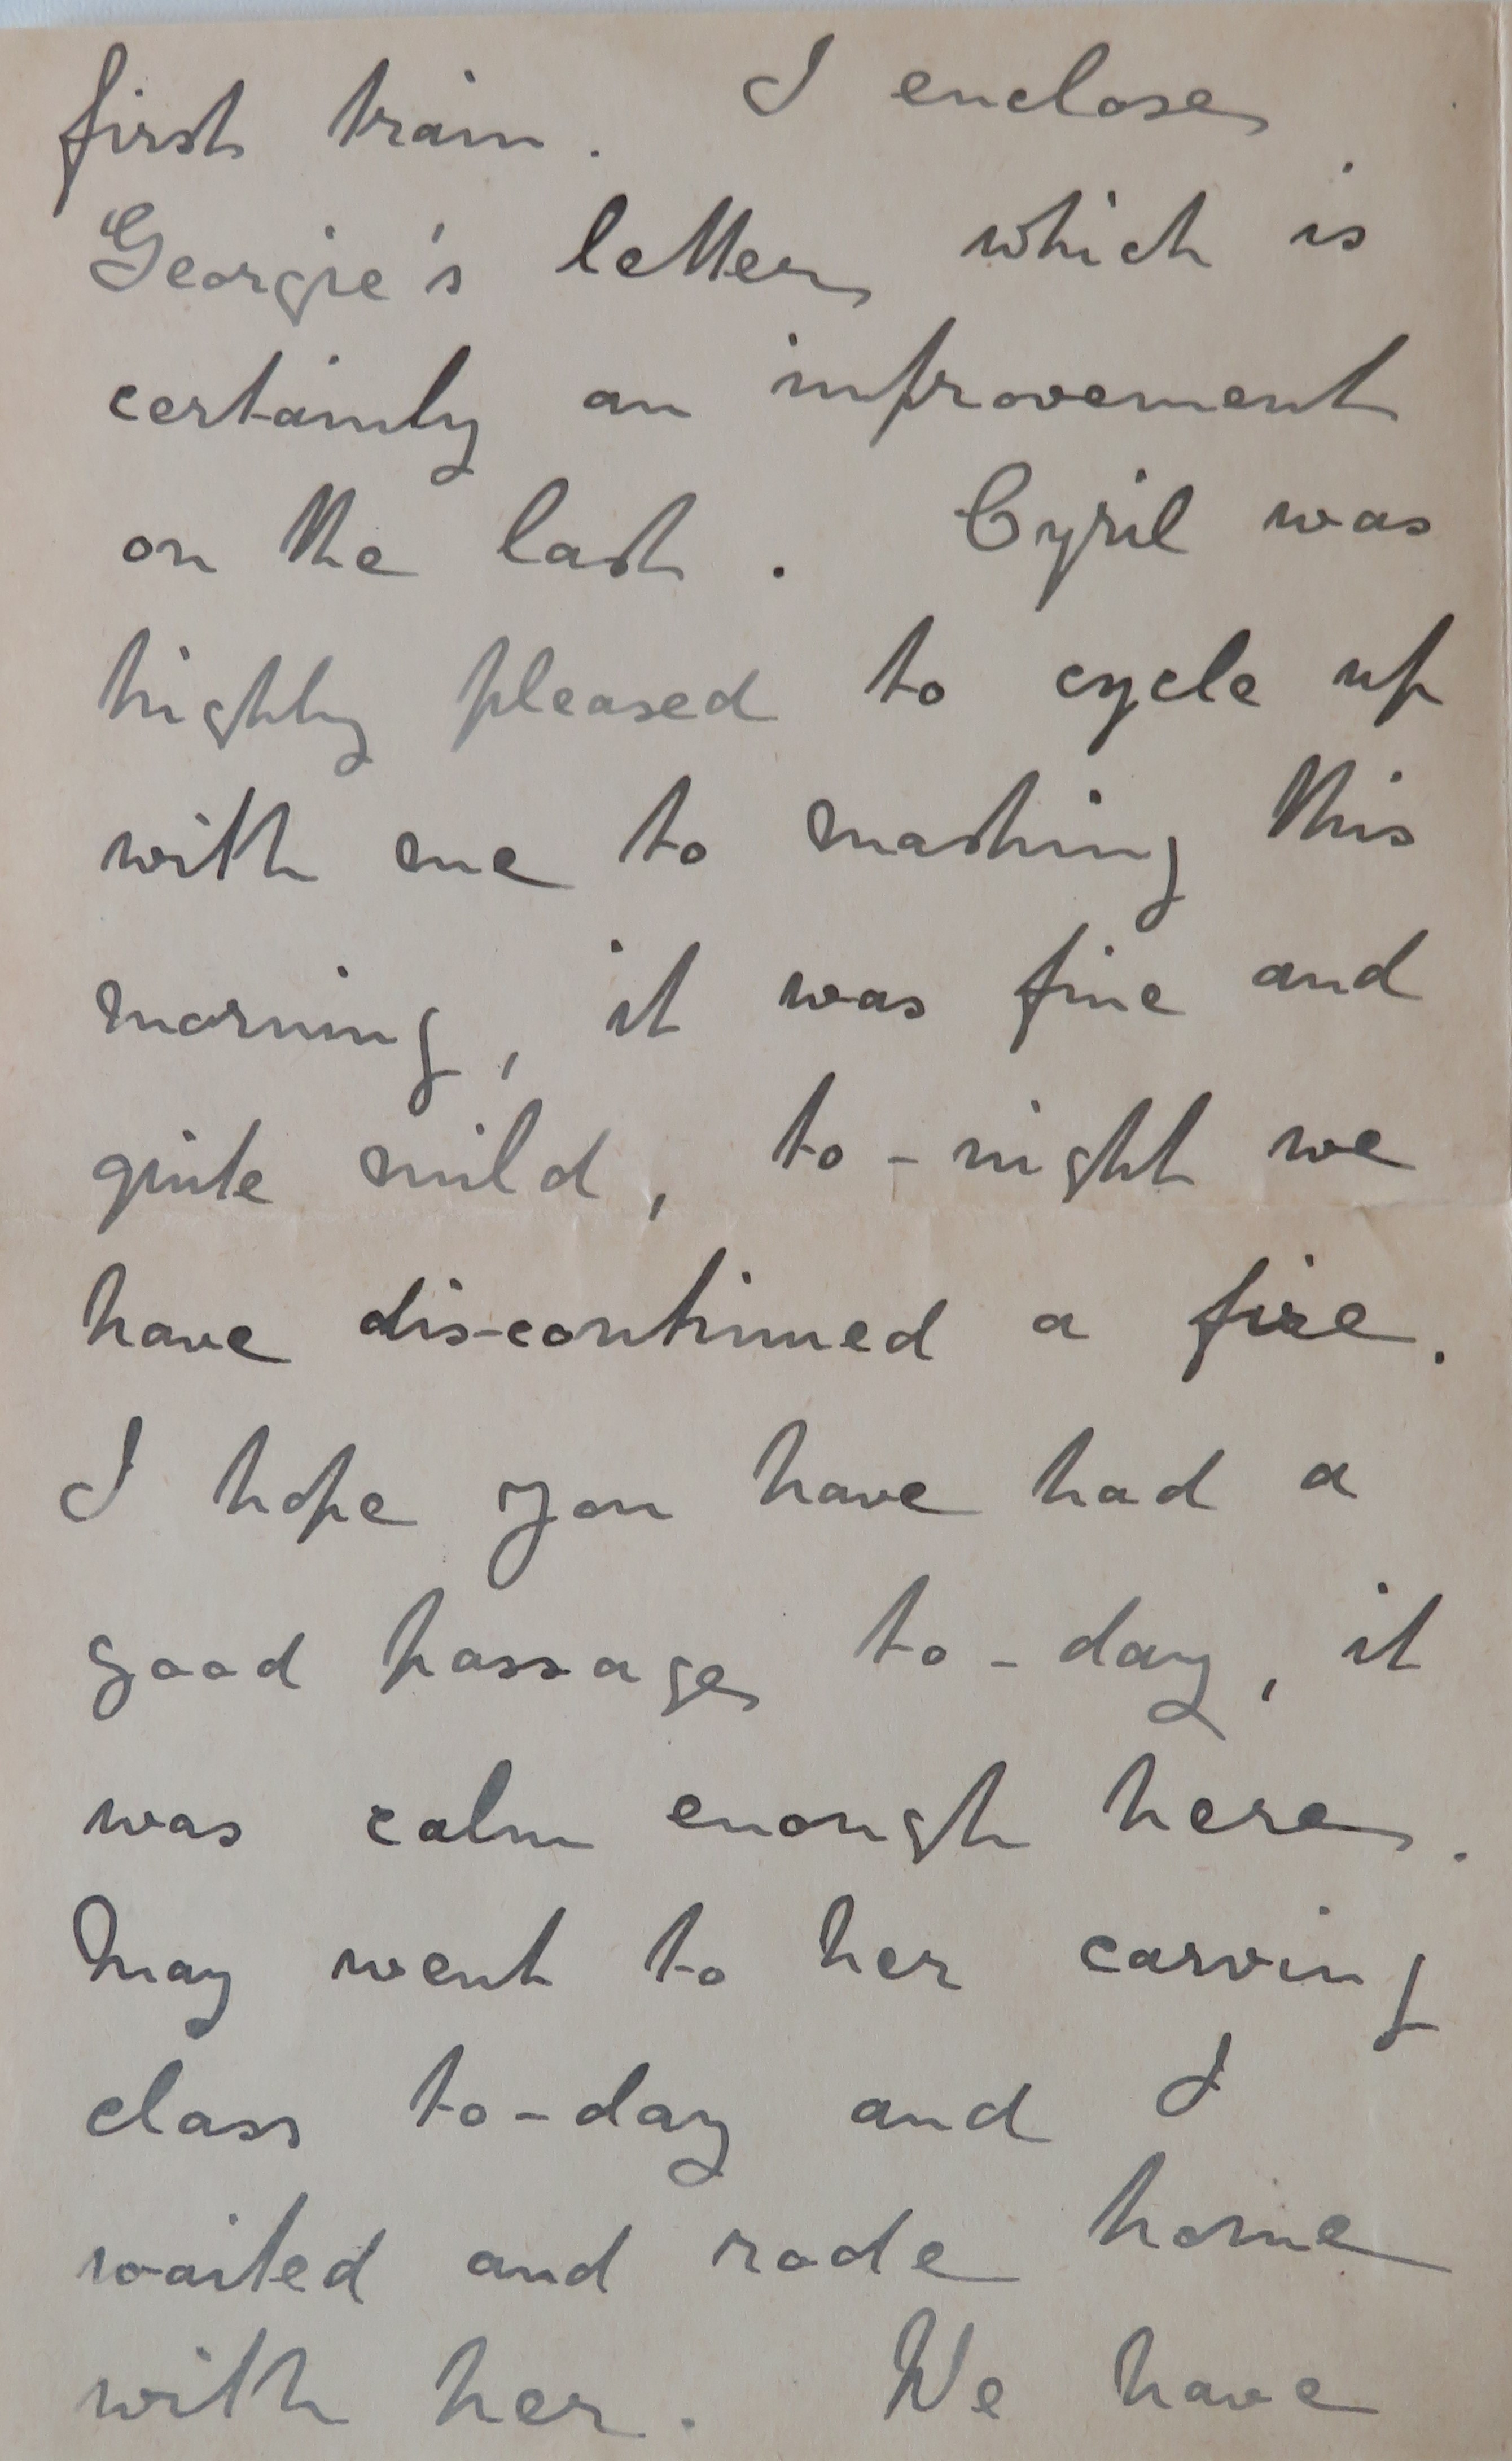 first train. I enclose
Georgie's letter which is
certainly an improvement
on the last. Cyril was
highly pleased to cycle up
with me to mashing this
morning, it was fine and
quite mild, to-night we
have dis-continued a fire.
I hope you have had a
good passage to-day, it
was calm enough here.
May went to her carving
class to-day and I
waited and rode home
with her. We have